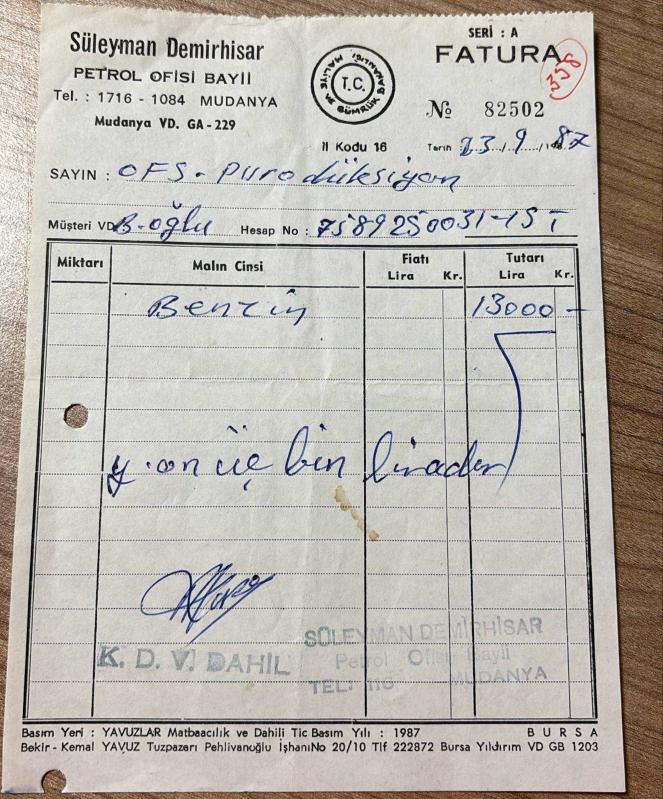 Süleyman Demirhisar
PETROL OFİSİ BAYİİ
Tel. : 1716 - 1084 MUDANYA
Mudanya VD. GA-229
T.C.
MALİYE VE GÜMRÜK BAKANLIĞI
SERİ : A
FATURA
358
№ 82502
İl Kodu 16
Tarih : 23./.9./198.7
SAYIN : OFS. Purodüksiyon
Müşteri VD. B.oğlu Hesap No : 7589250031-İST
Miktarı Malın Cinsi Fiatı Tutarı
Lira Kr. Lira Kr.
Benzin 13000 -
y.on üç bin liradır
K. D. V. DAHİL
SÜLEYMAN DEMİRHİSAR
Petrol Ofisi Bayii
TEL: MUDANYA
Basım Yeri : YAVUZLAR Matbaacılık ve Dahili Tic Basım Yılı : 1987 BURSA
Bekir - Kemal YAVUZ Tuzpazarı Pehlivanoğlu İşhanıNo 20/10 Tlf 222872 Bursa Yıldırım VD GB 1203